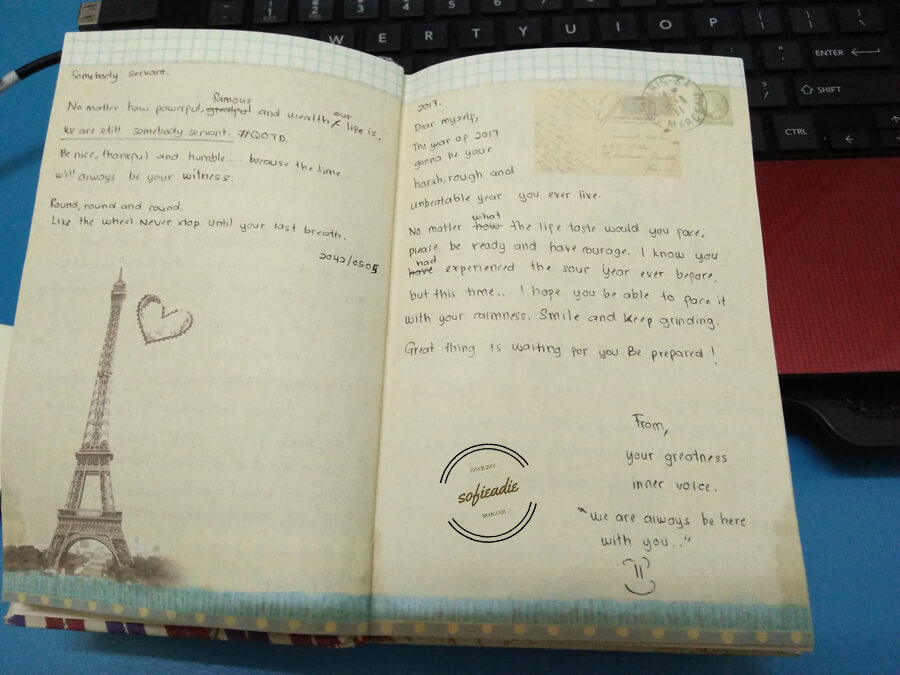 Somebody servant.
famous
No matter how powerful, grateful and wealth our life is,
we are still somebody servant. #QOTD
Be nice, thankful and humble.... because the time
will always be your witness.
Round, round and round.
Like the wheel. Never stop until your last breath.
2042/0505
2017.
Dear myself,
The year of 2017
gonna be your
harsh, rough and
unbeatable year you ever live.
what
No matter how the life taste would you face,
please be ready and have courage. I know you
had
have experienced the sour year ever before,
but this time... I hope you be able to face it
with your calmness. Smile and keep grinding.
Great thing is waiting for you. Be prepared!
From,
your greatness
inner voice.
"We are always be here
with you.."
sofieadie
BLOGGER
W E R T Y U I O P
ENTER
SHIFT
CTRL